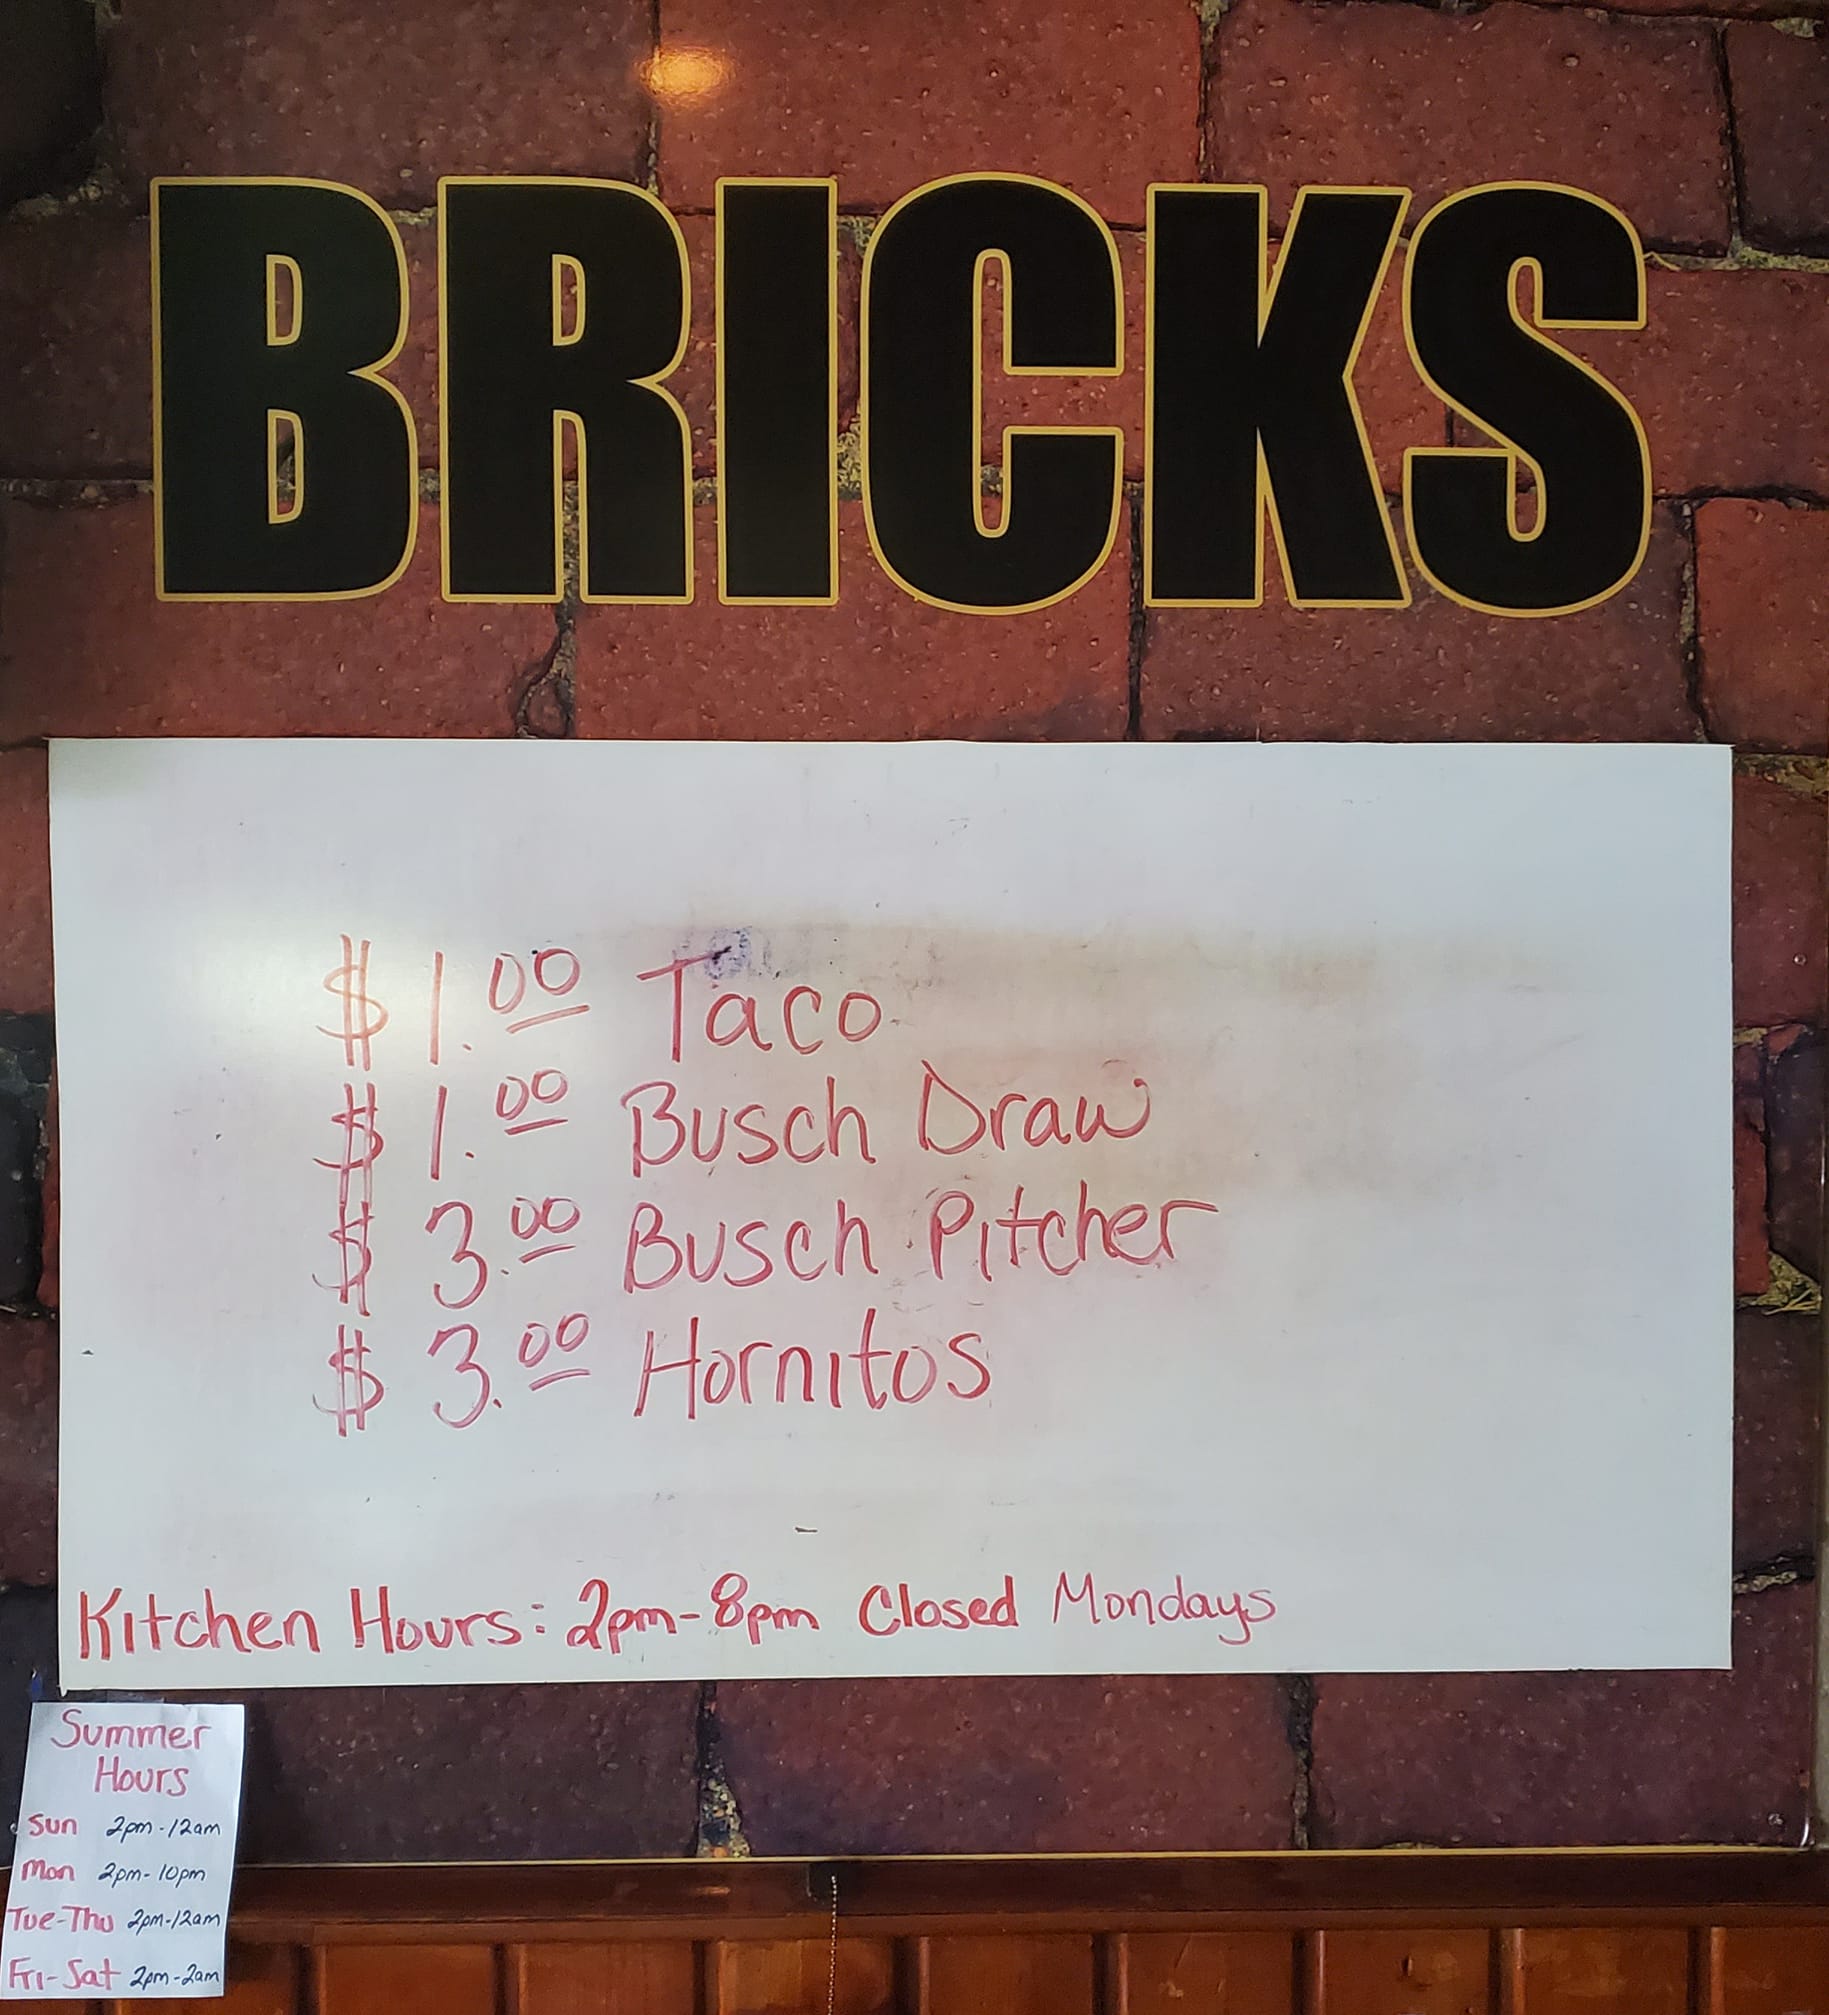 BRICKS
$ 1.00 Taco
$ 1.00 Busch Draw
$ 3.00 Busch Pitcher
$ 3.00 Hornitos
Kitchen Hours: 2pm-8pm Closed Mondays
Summer
Hours
Sun 2pm-12am
Mon 2pm-10pm
Tue-Thu 2pm-12am
Fri-Sat 2pm-2am